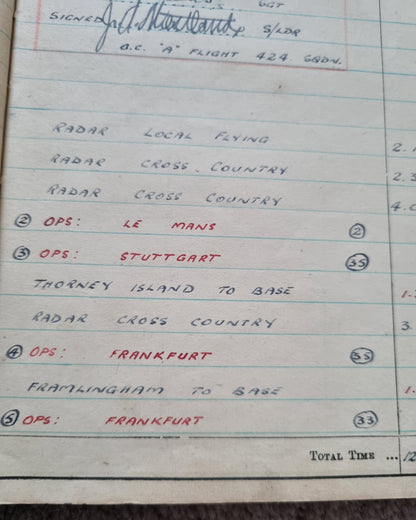 SGT
SIGNED S/LDR
O.C. "A" FLIGHT 424 SQDN.
RADAR LOCAL FLYING 2.
RADAR CROSS. COUNTRY 2.3
RADAR CROSS COUNTRY 4.0
② OPS: LE MANS ②
③ OPS: STUTTGART 35
THORNEY ISLAND TO BASE 1.
RADAR CROSS COUNTRY 3.
④ OPS: FRANKFURT 35
FRAMLINGHAM TO BASE 1.
⑤ OPS: FRANKFURT 33
TOTAL TIME ... 12